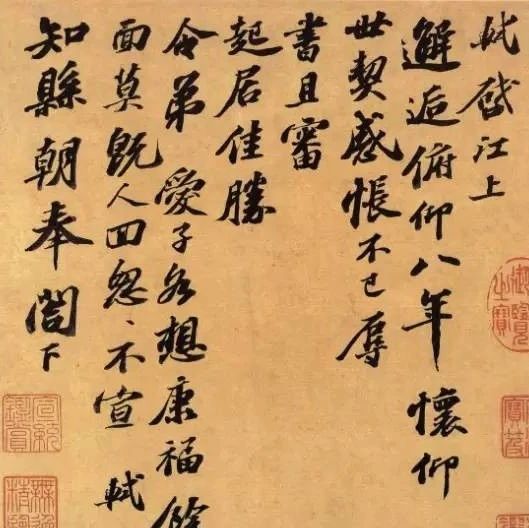 軾啓江上
邂逅俯仰八年懷仰
世契感悵不已辱
書且審
起居佳勝
令弟愛子各想康福餘
面莫既人回怱〻不宣軾
知縣朝奉閤下
御覽之寶
宣統鑑賞